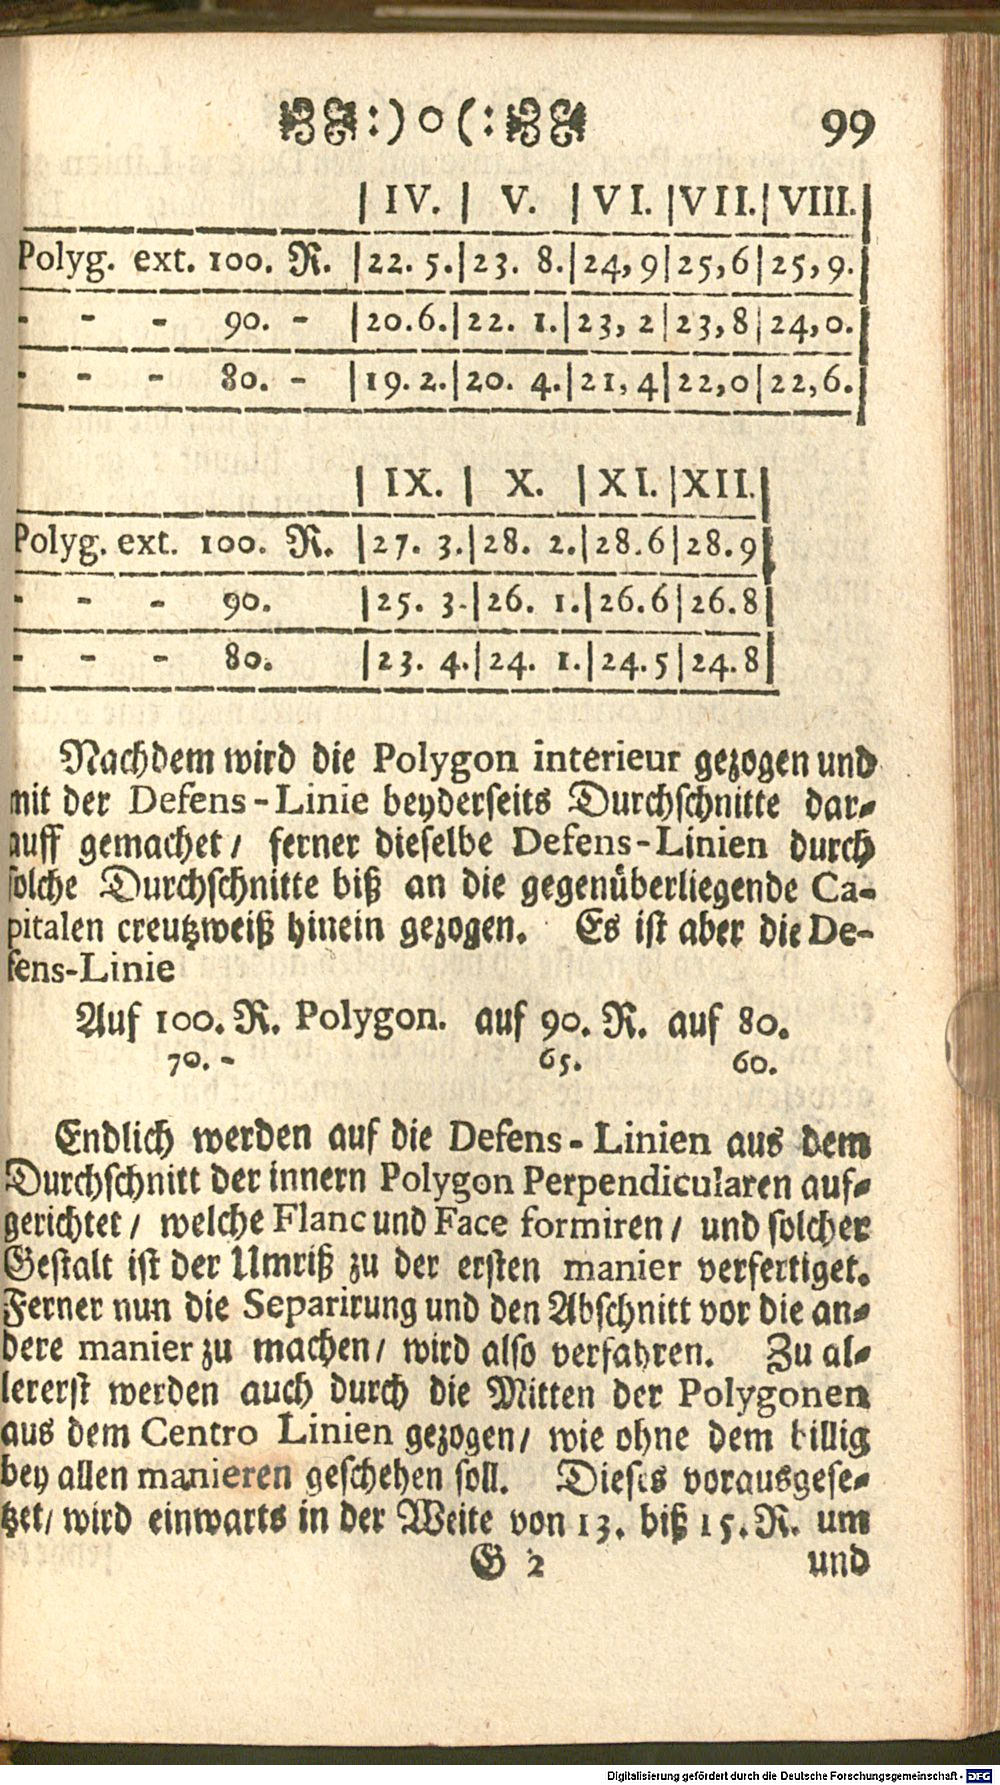 :) o (: 99
| IV. | V. | VI. | VII. | VIII. |
Polyg. ext. 100. R. | 22. 5. | 23. 8. | 24,9 | 25,6 | 25,9.
- - - 90. - | 20.6. | 22. 1. | 23, 2 | 23,8 | 24,0.
- - - 80. - | 19. 2. | 20. 4. | 21,4 | 22,0 | 22,6.
| IX. | X. | XI. | XII. |
Polyg. ext. 100. R. | 27. 3. | 28. 2. | 28.6 | 28.9
- - - 90. | 25. 3. | 26. 1. | 26.6 | 26.8
- - - 80. | 23. 4. | 24. 1. | 24.5 | 24.8
Nachdem wird die Polygon interieur gezogen und
mit der Defens-Linie beyderseits Durchschnitte dar-
auff gemachet / ferner dieselbe Defens-Linien durch
solche Durchschnitte biß an die gegenüberliegende Ca-
pitalen creutzweiß hinein gezogen. Es ist aber die De-
fens-Linie
Auf 100. R. Polygon. auf 90. R. auf 80.
70. - 65. 60.
Endlich werden auf die Defens-Linien aus dem
Durchschnitt der innern Polygon Perpendicularen auf-
gerichtet / welche Flanc und Face formiren / und solcher
Gestalt ist der Umriß zu der ersten manier verfertiget.
Ferner nun die Separirung und den Abschnitt vor die an-
dere manier zu machen / wird also verfahren. Zu al-
lererst werden auch durch die Mitten der Polygonen
aus dem Centro Linien gezogen / wie ohne dem billig
bey allen manieren geschehen soll. Dieses vorausgese-
tzet / wird einwarts in der Weite von 13. biß 15. R. um
G 2 und
Digitalisierung gefördert durch die Deutsche Forschungsgemeinschaft - DFG